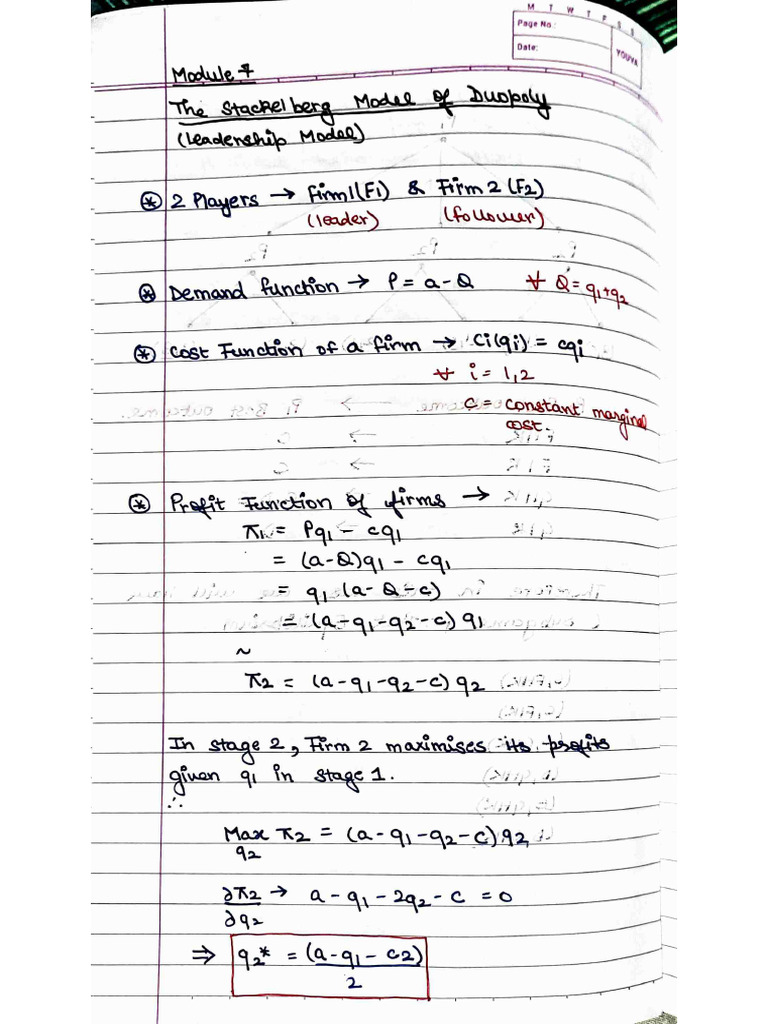 M T W T F S S
Page No.:
Date:
YOUVA
Module 7
The Stackelberg Model of Duopoly
(Leadership Model)
⊛ 2 Players → Firm1(F1) & Firm 2 (F2)
(leader) (follower)
⊛ Demand function → P = a - Q ∀ Q = q1+q2
⊛ Cost Function of a firm → Ci(qi) = cqi
∀ i = 1,2
c = constant marginal
cost.
⊛ Profit Function of firms →
π1 = Pq1 - cq1
= (a-Q)q1 - cq1
= q1 (a - Q - c)
= (a - q1 - q2 - c) q1
~
π2 = (a - q1 - q2 - c) q2
In stage 2, Firm 2 maximises its profits
given q1 in stage 1.
∴
Max π2 = (a - q1 - q2 - c) q2
q2
∂π2 → a - q1 - 2q2 - c = 0
∂q2
⇒ q2* = (a - q1 - c2)
2